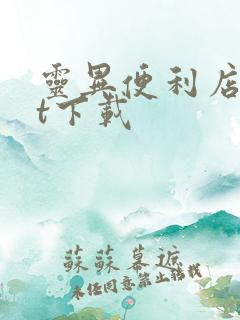 靈異便利店
t下載
蘇蘇幕遮
未經同意禁止轉載